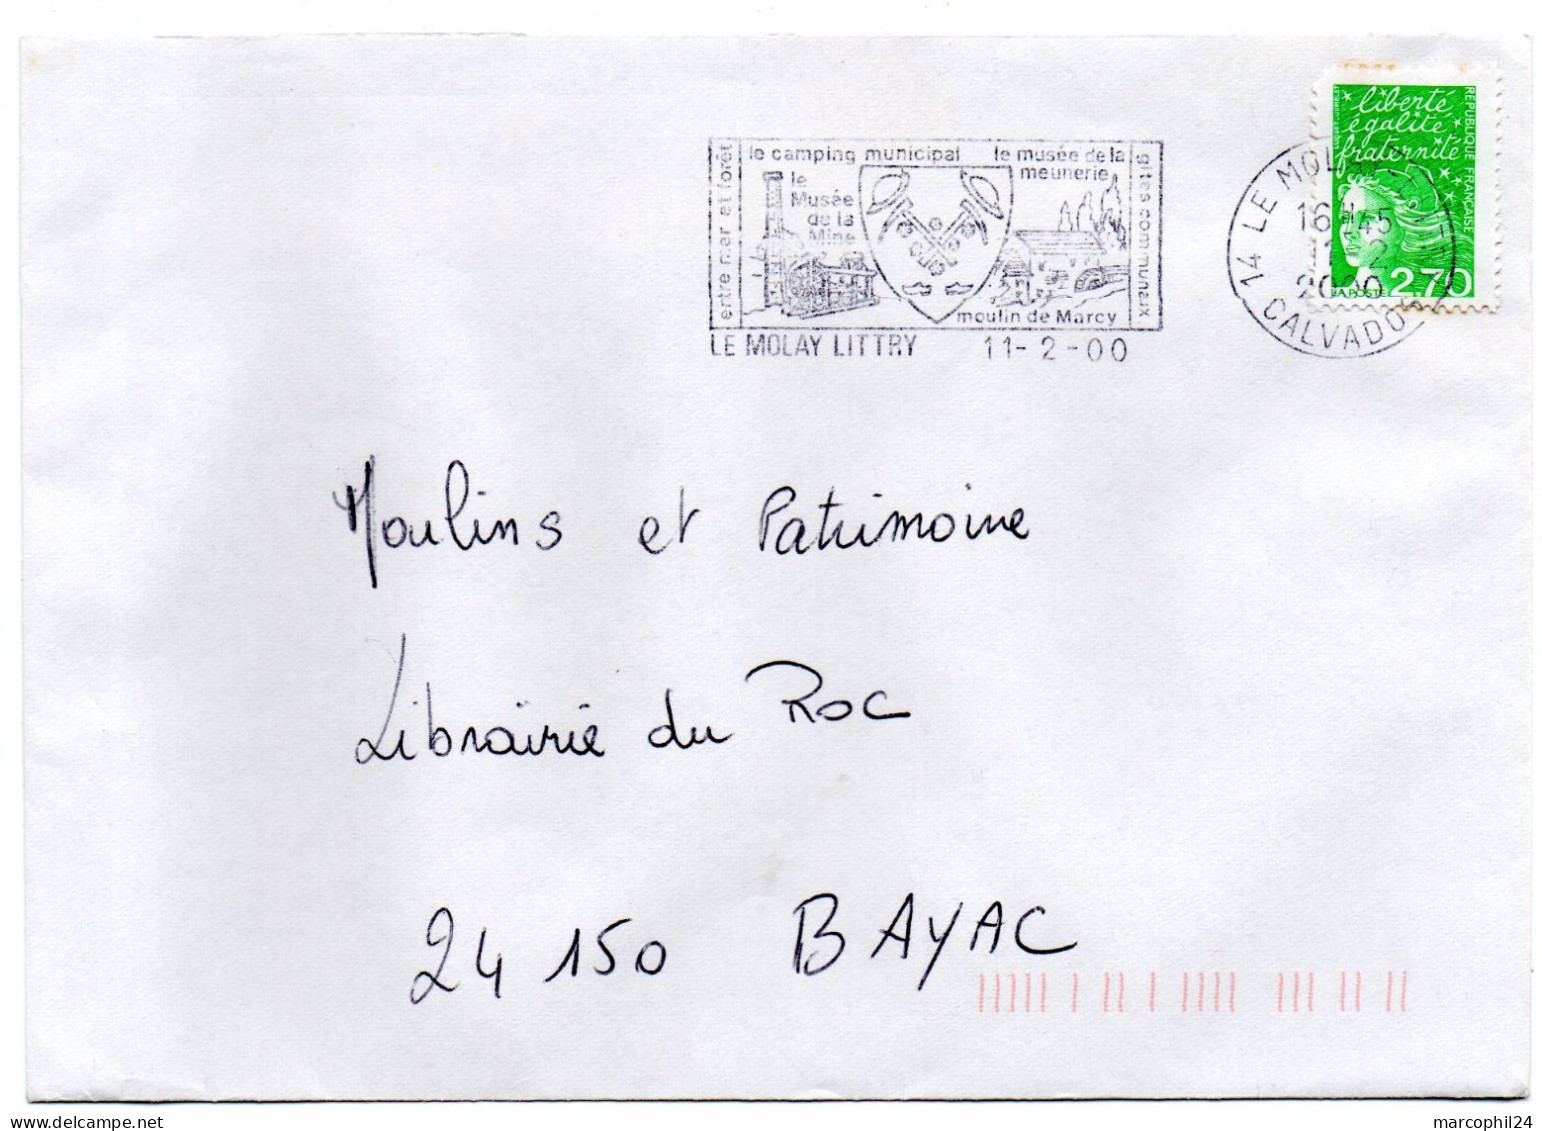 liberté
égalité
fraternité
RÉPUBLIQUE FRANÇAISE
LA POSTE
2,70
entre mer et forêt
le camping municipal
le musée de la
meunerie
gîtes communaux
le
Musée
de la
Mine
moulin de Marcy
LE MOLAY LITTRY 11-2-00
14 LE MOLAY-LITTRY
16H45
11-2
2000
CALVADOS
Moulins et Patrimoine
Librairie du Roc
24 150 BAYAC
marcophil24